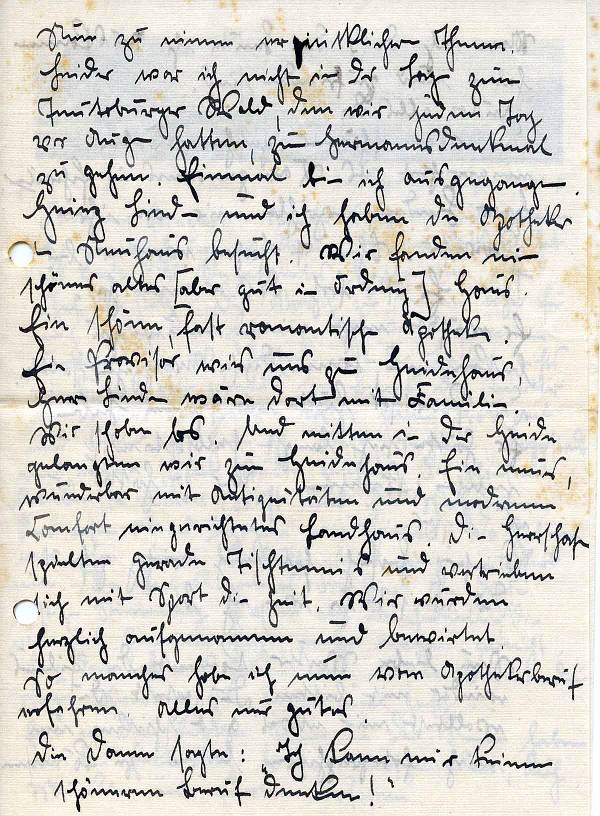 Nun zu einem erquicklichen Thema.
Leider war ich nicht in der Lage zum
Teutoburger Wald, den wir jeden Tag
vor Augen hatten, zum Hermannsdenkmal
zu gehen. Einmal bin ich ausgegangen.
Heinz Linden und ich haben die Apotheke
in Neuhaus besucht. Wir fanden ein
schönes altes [aber gut in Ordnung] Haus.
Ein schöne, fast romantische Apotheke.
Ein Provisor wies uns zum Heidehaus,
Herr Linden wäre dort mit Familie.
Wir schoben los. Und mitten in der Heide
gelangten wir zum Heidehaus. Ein neues,
wunderbar mit Antiquitäten und modernem
Comfort eingerichtetes Landhaus. Die Herrschaften
spielten gerade Tischtennis und vertrieben
sich mit Sport die Zeit. Wir wurden
herzlich aufgenommen und bewirtet.
So manches habe ich nun vom Apothekerberuf
erfahren. Alles nur gutes.
Die Dame sagte: „Ich kann mir keinen
schöneren Beruf denken!“